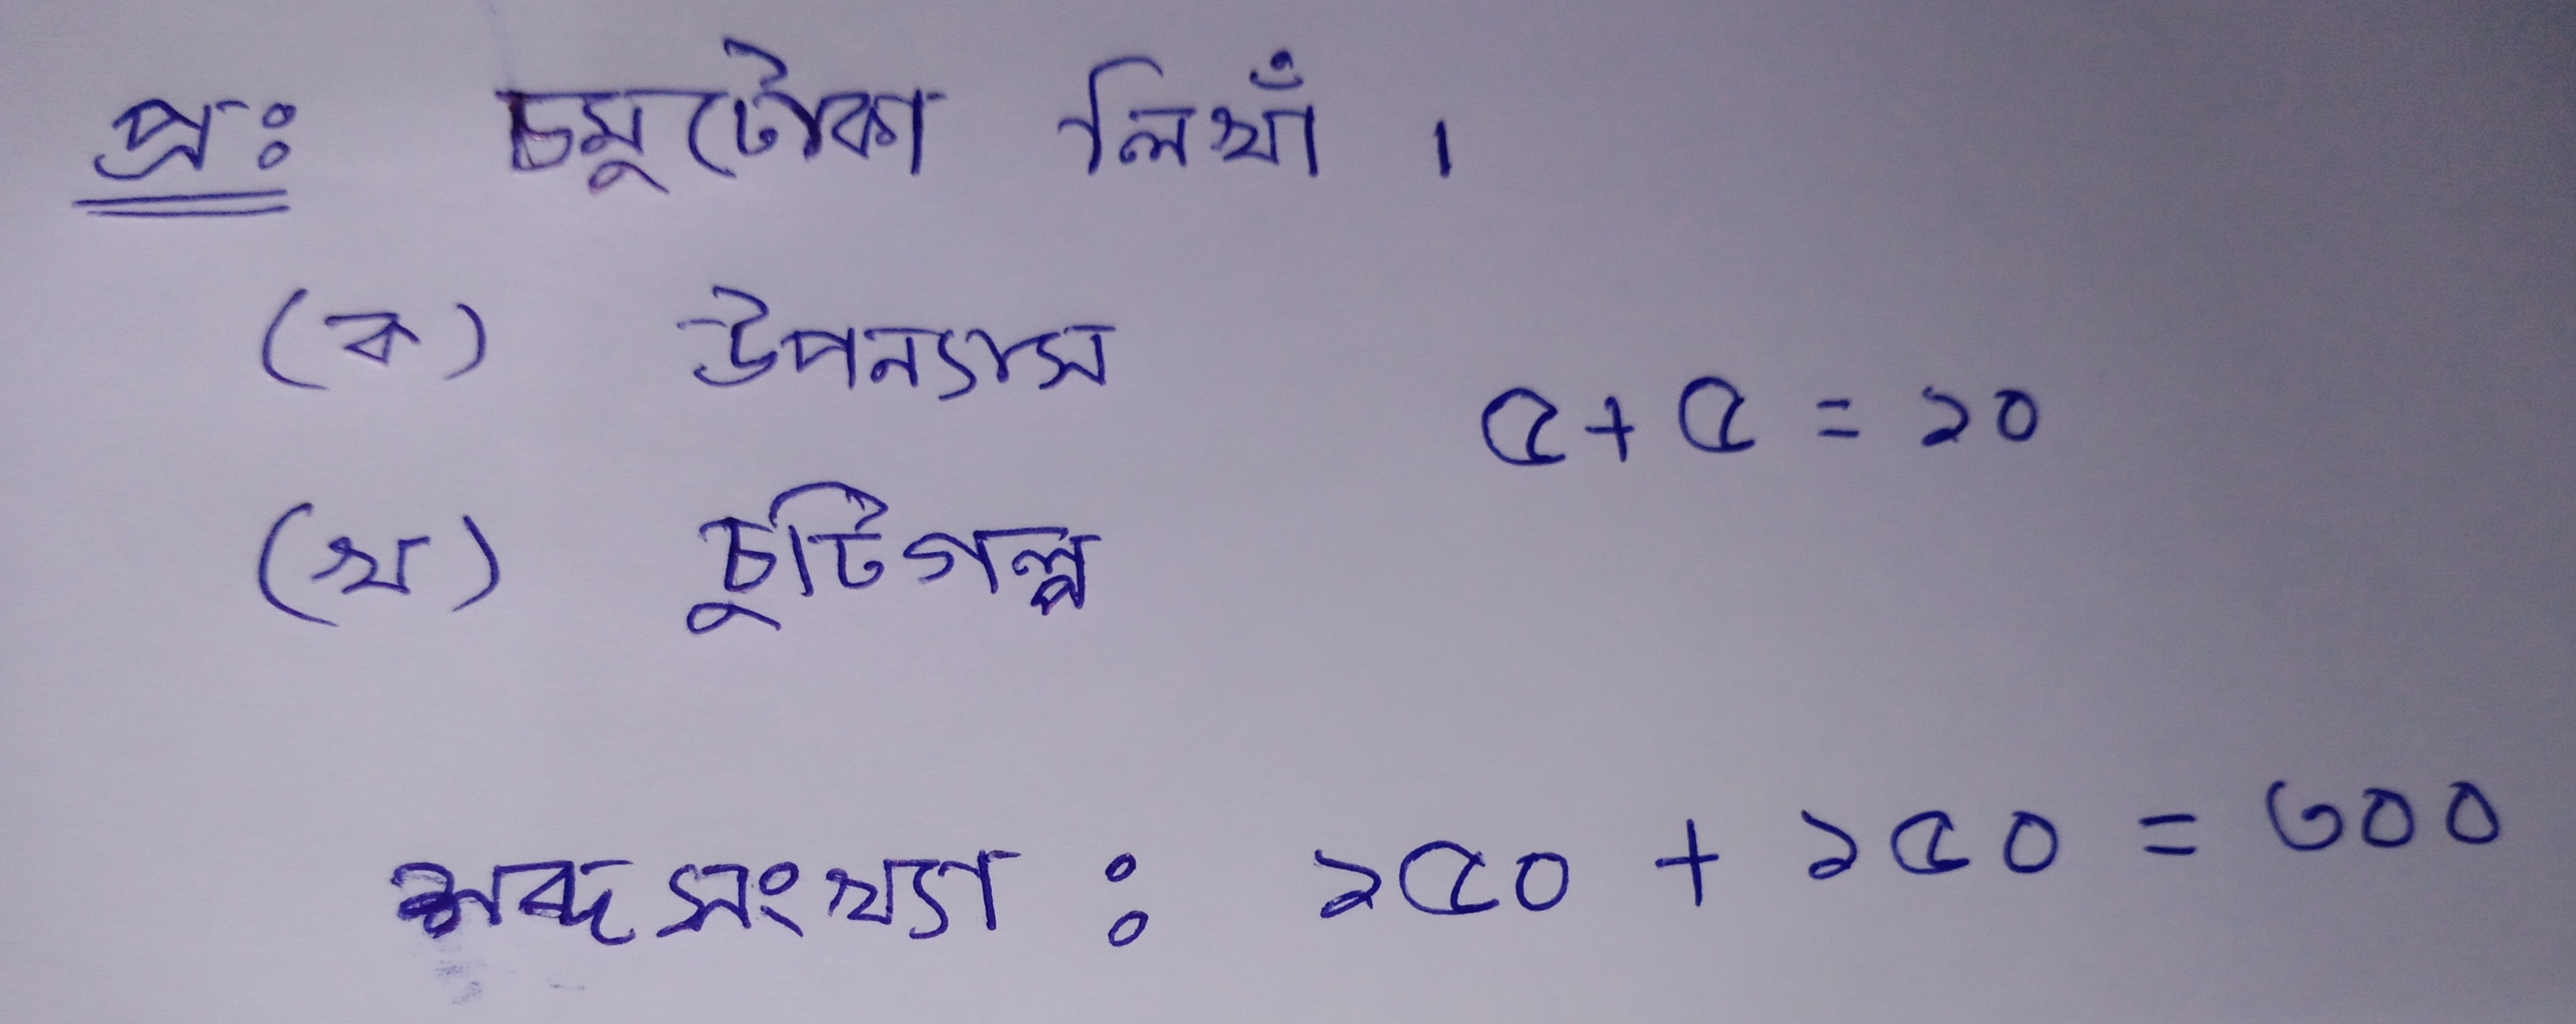 প্ৰঃ চমুটোকা লিখাঁ ।
(ক) উপন্যাস
৫ + ৫ = ১০
(খ) চুটিগল্প
শব্দসংখ্যা : ১৫০ + ১৫০ = ৩০০